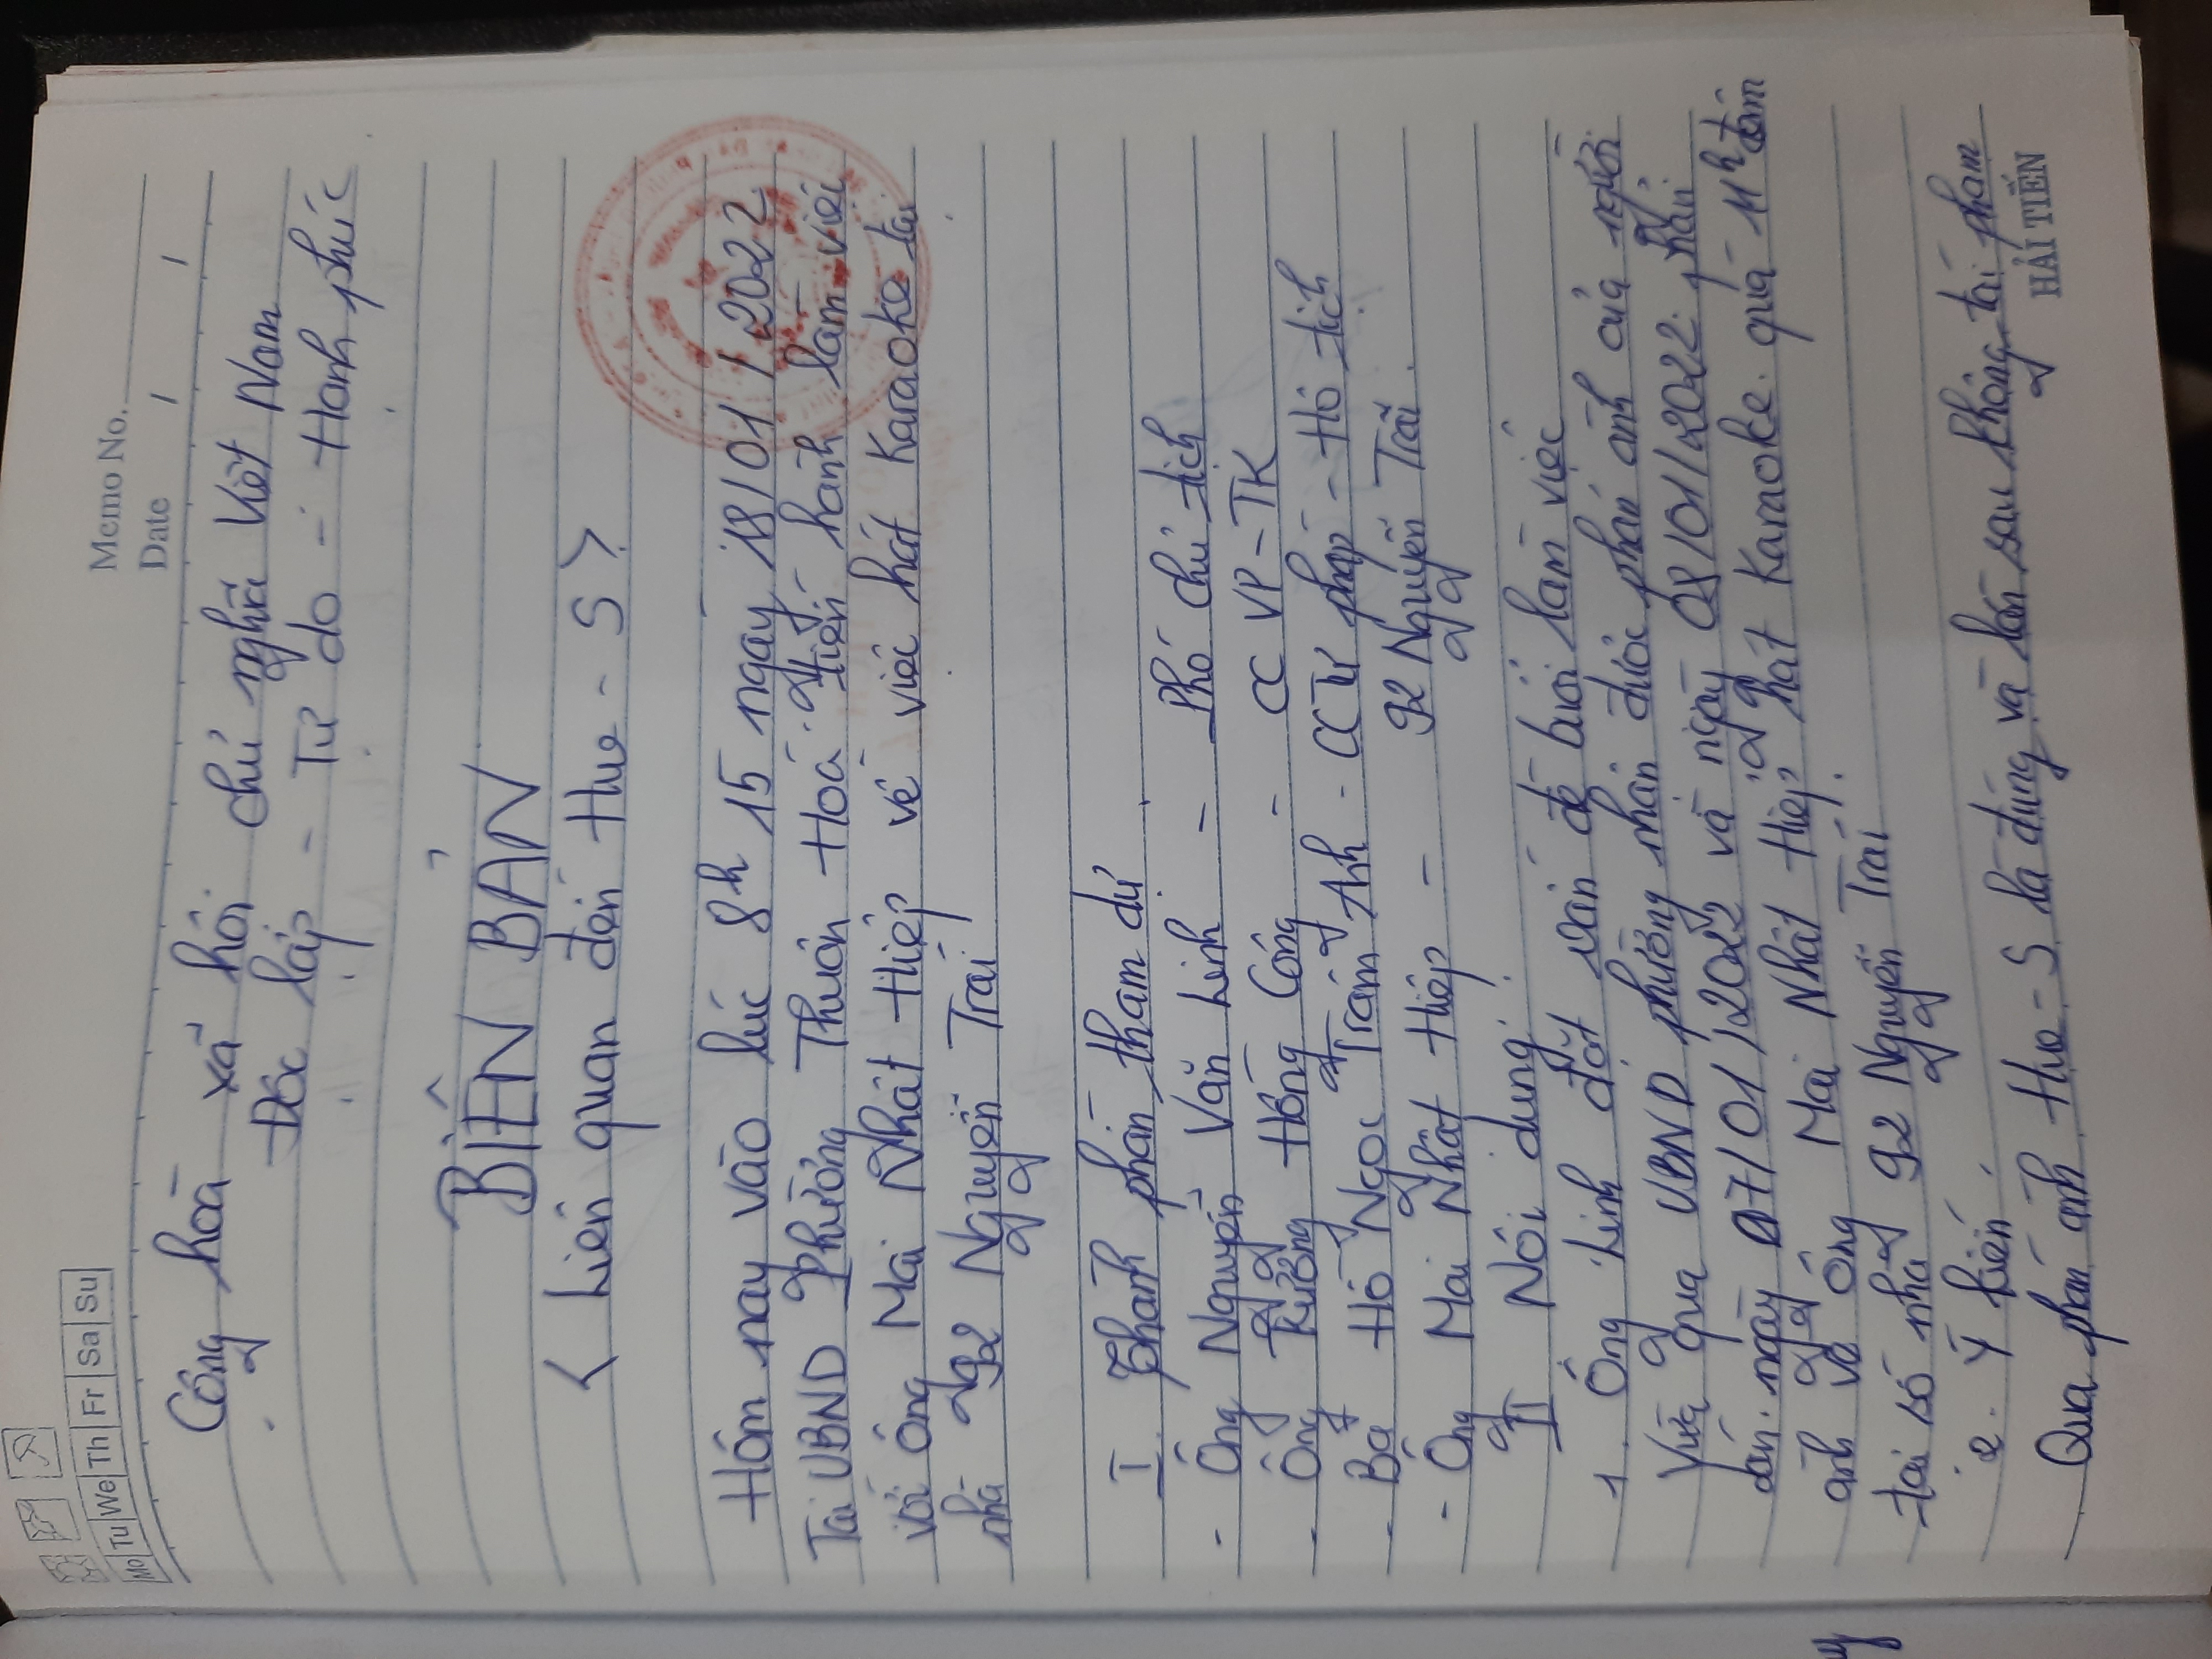 Memo No.
Date / /
Mo Tu We Th Fr Sa Su
Cộng hoà xã hội chủ nghĩa Việt Nam
Độc lập - Tự do - Hạnh phúc
BIÊN BẢN
< Liên quan đến Hue - S >
Hôm nay vào lúc 8h 15 ngày 18/01/2022
Tại UBND Phường Thuận Hoà tiến hành làm việc
với ông Mai Nhật Hiệp về việc hát Karaoke tại
nhà 92 Nguyễn Trãi
I Thành phần tham dự
- Ông Nguyễn Văn Linh - Phó chủ tịch
- Ông Trương Hồng Công - CC VP - TK
- Bà Hồ Ngọc Trâm Anh - CC Tư pháp - Hộ tịch
- Ông Mai Nhật Hiệp - 92 Nguyễn Trãi
II Nội dung:
1. Ông Linh đặt vấn đề buổi làm việc
Vừa qua UBND phường nhận được phản ánh của người
dân. ngày 07/01/2022 và ngày 08/01/2022 phản
ánh về ông Mai Nhật Hiệp hát Karaoke quá 11h đêm
tại số nhà 92 Nguyễn Trãi
2. Ý kiến
Qua phản ánh Hue - S là đúng và lần sau không tái phạm
HẢI TIẾN